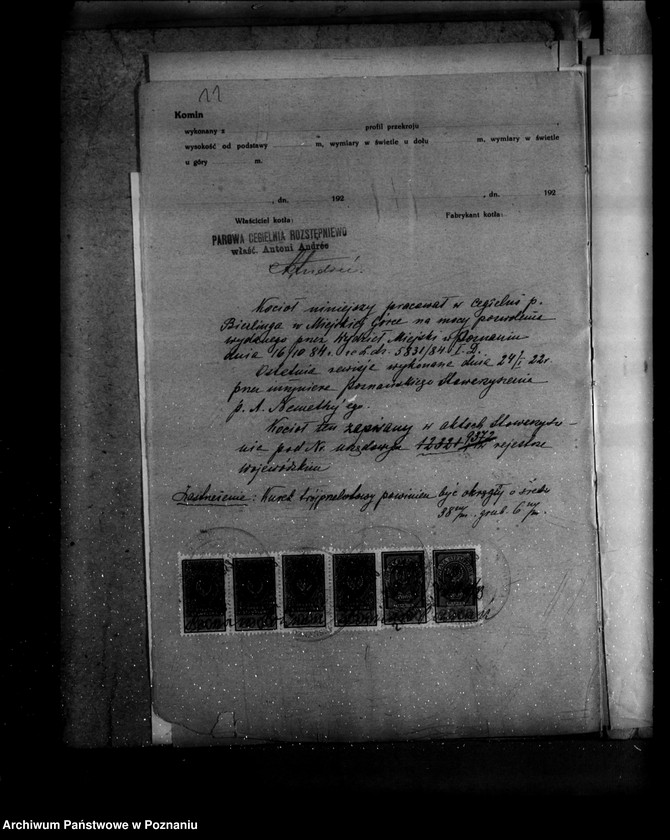 11
Komin
wykonany z profil przekroju
wysokość od podstawy m, wymiary w świetle u dołu m, wymiary w świetle
u góry m.
, dn. 192 , dn. 192
Właściciel kotła: Fabrykant kotła:
PAROWA CEGIELNIA ROZSTĘPNIEWO
właśc. Antoni Andrée
Kocioł niniejszy pracował w cegielni p.
Bierlinga w Miejskiej Górce na mocy pozwolenia
wydanego przez Wydział Miejski w Poznaniu
dnia 16/10 84. 5831/84 I. D.
Ostatnia rewizja wykonana dnia 24/I 22r.
przez inżyniera Poznańskiego Stowarzyszenia
p. A. ego.
Kocioł ten zapisany w aktach Stowarzysze-
nia pod Nr. 9372 rejestru
wojewódzkim
Zastrzeżenie: Kurek trójprzelotowy powinien być okrągły o średn.
38 m/m. grub. 6 m/m.
Archiwum Państwowe w Poznaniu